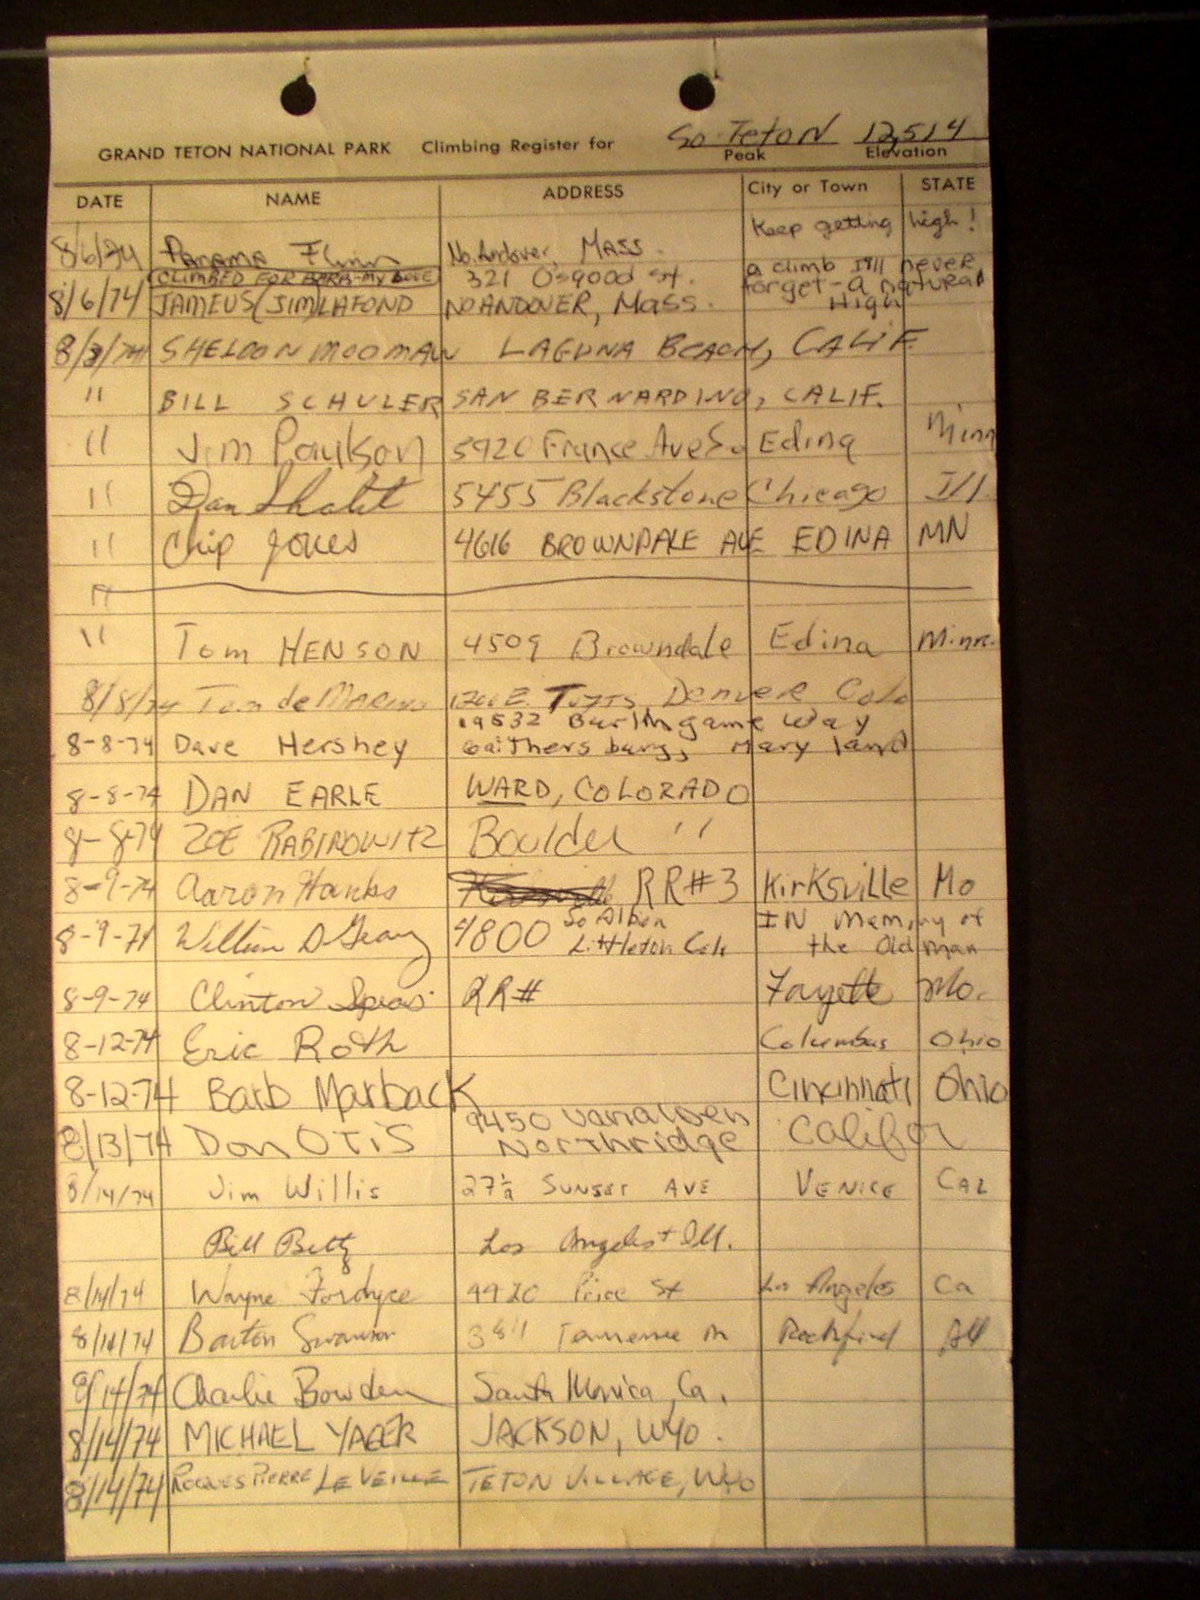 So. Teton 12,514
GRAND TETON NATIONAL PARK Climbing Register for Peak Elevation
DATE NAME ADDRESS City or Town STATE
Keep getting high!
8/6/74 Panama Flinn No. Andover, Mass.
CLIMBED FOR BARB-MY LOVE 321 Osgood st. a climb I'll never
8/6/74 JAMEUS (JIM) LAFOND NO ANDOVER, Mass. forget - a natural
High
8/8/74 SHELDON MOOMAW LAGUNA BEACH, CALIF.
" BILL SCHULER SAN BERNARDINO, CALIF.
" Jim Paulson 5920 France Ave S. Edina Minn
" Dan Shalit 5455 Blackstone Chicago Ill.
" Chip Jones 4616 BROWNDALE AVE EDINA MN
"
" Tom HENSON 4509 Browndale Edina Minn.
8/8/74 Tom de 1200 E. Tufts Denver Colo
19532 Burlingame Way
8-8-74 Dave Hershey Gaithersburg, Maryland
8-8-74 DAN EARLE WARD, COLORADO
8-8-74 ZOE RABINOWITZ Boulder "
8-9-74 Aaron Hanks RR#3 Kirksville Mo
8-9-74 William D 4800 So Alban IN Memory of
Littleton Colo the Old Man
8-9-74 Clinton Spears RR# Fayette Mo.
8-12-74 Eric Roth Columbus Ohio
8-12-74 Barb Marback Cincinnati Ohio
9450 Vanalden
8/13/74 Don OTIS Northridge Califor
8/14/74 Jim Willis 27 1/2 SUNSET AVE VENICE CAL
Bill Betz Los Angeles + Ill.
8/14/74 Wayne Fordyce 4920 Price St Los Angeles Ca
8/14/74 Barton Swanson 3811 Rockford Ill
8/14/74 Charlie Bowden Santa Monica, Ca.
8/14/74 MICHAEL YAGER JACKSON, WYO.
8/14/74 PIERRE LE VEILLE TETON VILLAGE, WYO